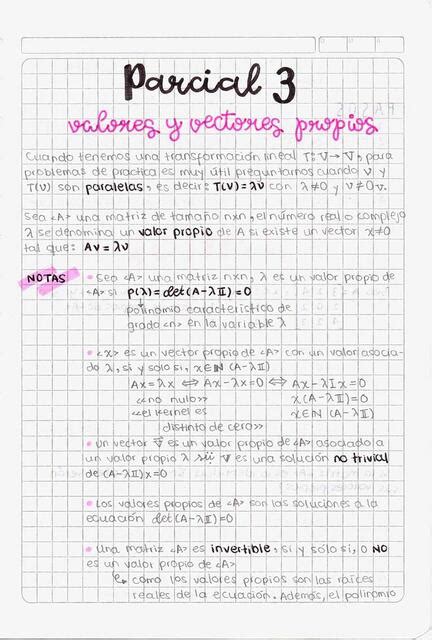 Parcial 3
valores y vectores propios
Cuando tenemos una transformación lineal T: V → V, para
problemas de practica es muy útil preguntarnos cuando v y
T(v) son paralelas, es decir: T(v)=λv con λ≠0 y v≠0v.
Sea <A> una matriz de tamaño nxn, el número real o complejo
λ se denomina un valor propio de A si existe un vector x≠0
tal que: Av = λv
NOTAS
• Sea <A> una matriz nxn, λ es un valor propio de
<A> si P(λ) = det(A-λII) = 0
polinomio característico de
grado <n> en la variable λ
• <x> es un vector propio de <A> con un valor asocia-
do λ, si y solo si, x∈IN (A-λII)
Ax = λx ⟺ Ax-λx=0 ⟺ Ax-λIx = 0
<<no nulo>> x(A-λII)=0
<<el kernel es x∈IN (A-λII)
distinto de cero>>
• un vector v⃗ es un valor propio de <A> asociado a
un valor propio λ sii v⃗ es una solución no trivial
de (A-λII)x=0
• Los valores propios de <A> son las soluciones a la
ecuación det(A-λII)=0
• Una matriz <A> es invertible, si y sólo si, 0 NO
es un valor propio de <A>
↳ como los valores propios son las raíces
reales de la ecuación. Además, el polinomio